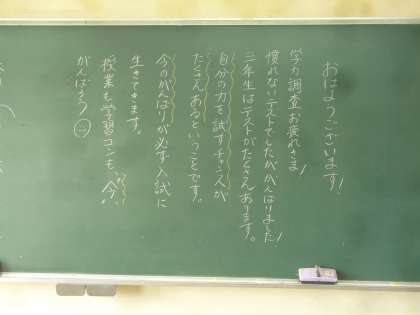 おはようございます!
学力調査お疲れさま!
慣れないテストでしたががんばりました!
三年生はテストがたくさんあります。
自分の力を試すチャンスが
たくさんあるということです。
今のがんばりが必ず入試に
生きてきます。
授業も学習コンも、"今"
がんばろう